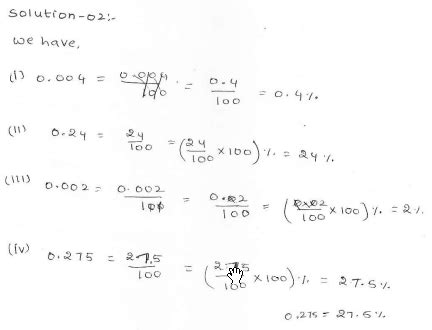 Solution-02:-
we have,
(I) 0.004 = 0.004/100 = 0.4/100 = 0.4%
(II) 0.24 = 24/100 = (24/100 × 100)% = 24%
(III) 0.002 = 0.002/100 = 0.02/100 = (0.02/100 × 100)% = 2%
(iv) 0.275 = 27.5/100 = (27.5/100 × 100)% = 27.5%
0.275 = 27.5%